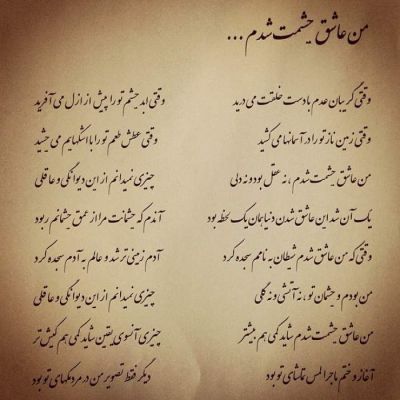 من عاشق چشمت شدم ...
وقتی گریبان عدم با دست خلقت می درید وقتی ابد چشم تو را پیش از ازل می آفرید
وقتی زمین ناز تو را در آسمانها می کشید وقتی عطش طعم تو را با اشکهایم می چشید
من عاشق چشمت شدم ، نه عقل بود و نه دلی چیزی نمیدانم از این دیوانگی و عاقلی
یک آن شد این عاشق شدن دنیا همان یک لحظه بود آندم که چشمانت مرا از عمق چشمانم ربود
وقتی که من عاشق شدم شیطان به نامم سجده کرد آدم زمینی تر شد و عالم به آدم سجده کرد
من بودم و چشمان تو ، نه آتشی و نه گلی چیزی نمیدانم از این دیوانگی و عاقلی
من عاشق چشمت شدم شاید کمی هم بیشتر چیزی آنسوی یقین شاید کمی هم کیش تر
آغاز و ختم ماجرا لمس تماشای تو بود دیگر فقط تصویر من در مردمکهای تو بود